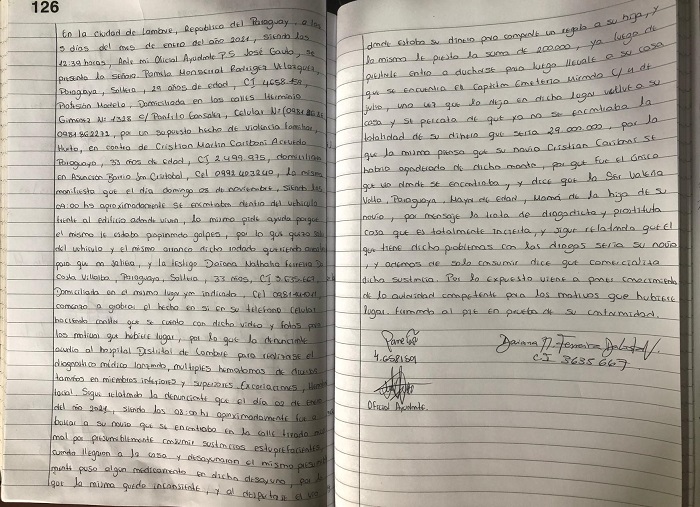 126
En la ciudad de Lambare, Republica del Paraguay, a los
5 dias del mes de enero del año 2021, siendo las
12:39 horas, Ante mi Oficial Ayudante P.S. José Gaula, se
presento la Señora Pamela Monserrat Rodrigez Velazquez,
Paraguaya, Soltera, 29 años de edad, CI 4658
Profesión Modelo, Domiciliada en las calles Herminio
Gimenez Nº 1328 c/ Pantilo Gonzalez, Celular Nº (0981
0981862272, por un supuesto hecho de violencia familiar,
Hurto, en contra de Cristian Martin Cariboni Acevedo
Paraguayo, 33 años de edad, CI 2.499.975, domiciliado
en Asuncion Barrio Sn Cristobal, Cel 0992403240, la misma
manifiesta que el dia domingo 05 de noviembre, siendo las
04:00 hs aproximadamente se encontraba dentro del vehiculo
frente al edificio adonde viven, la misma pide ayuda porque
el mismo le estaba popinando golpes, por lo que quizo salir
del vehiculo y el mismo arranco dicho rodado
para que no saliera, y la testigo Daiana Nathalia Ferreira Da
Costa Villalba, Paraguaya, Soltera, 33 años, CI 3.635.667,
Domiciliada en el mismo lugar indicado, Cel 0981
comenzo a grabar el hecho en si con su telefono celular
haciendo constar que se cuenta con dicho video y fotos para
los motivos que hubiere lugar, por lo que la denunciante
acudio al hospital Distrital de Lambare para realizarse el
diagnostico médico lanzando, multiples hematomas de diversos
tamaños en miembros inferiores y superiores, Excoriaciones,
facial. Sigue relatando la denunciante que el dia 02 de enero
del año 2021, siendo las 03:00 hs aproximadamente fue a
buscar a su novio que se encontraba en la calle tirado
mal por presumiblemente consumir sustancias estupefacientes,
cuando llegaron a la casa y desayunaron el mismo
mente puso algun medicamento en dicho desayuno, por lo
que la misma quedo inconsiente, y al despertarse el
donde estaba su dinero para comprarle un regalo a su hija, y
la misma le presto la suma de 200.000, ya luego de
pidiendole entro a ducharse para luego llevarle a su casa
que se encuentra el Capitán Emeterio Miranda C/ 11 de
julio, una vez que lo dejo en dicho lugar volvio a su
casa y se percata de que ya no se encontraba la
totalidad de su dinero que seria 29.000.000, por lo
que la misma piensa que su novio Cristian Cariboni se
habria apoderado de dicho monto, por que fue el único
que vio donde se encontraba, y dice que la Sra Valeria
Vollo, Paraguaya, Mayor de edad, Mamá de la hija de su
novio, por mensaje la trata de drogadicta y prostituta
cosa que es totalmente incierta, y sigue relatando que el
que tiene dicho problemas con las drogas seria su novio
, y ademas de solo consumir dice que comercializa
dicha sustancia. Por lo expuesto viene a poner conocimiento
de la autoridad competente para los motivos que hubiere
lugar. Firmando al pie en prueba de su conformidad.
Daiana N. Ferreira Da Costa V.
4.658189
CI 3635667
Oficial Ayudante.